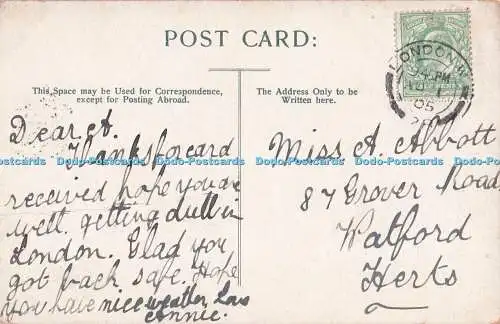 POST CARD:
This Space may be Used for Correspondence,
except for Posting Abroad.
The Address Only to be
Written here.
LONDON. W
05
Dear A.
Thanks for card
received hope you are
well. getting dull in
London. Glad you
got back safe. Hope
you have nice weather, love
Annie.
Miss A. Abbott
87 Grover Road
Watford
Herts
Dodo-Postcards Dodo-Postcards Dodo-Postcards Dodo-Postcards Dodo-Postcards